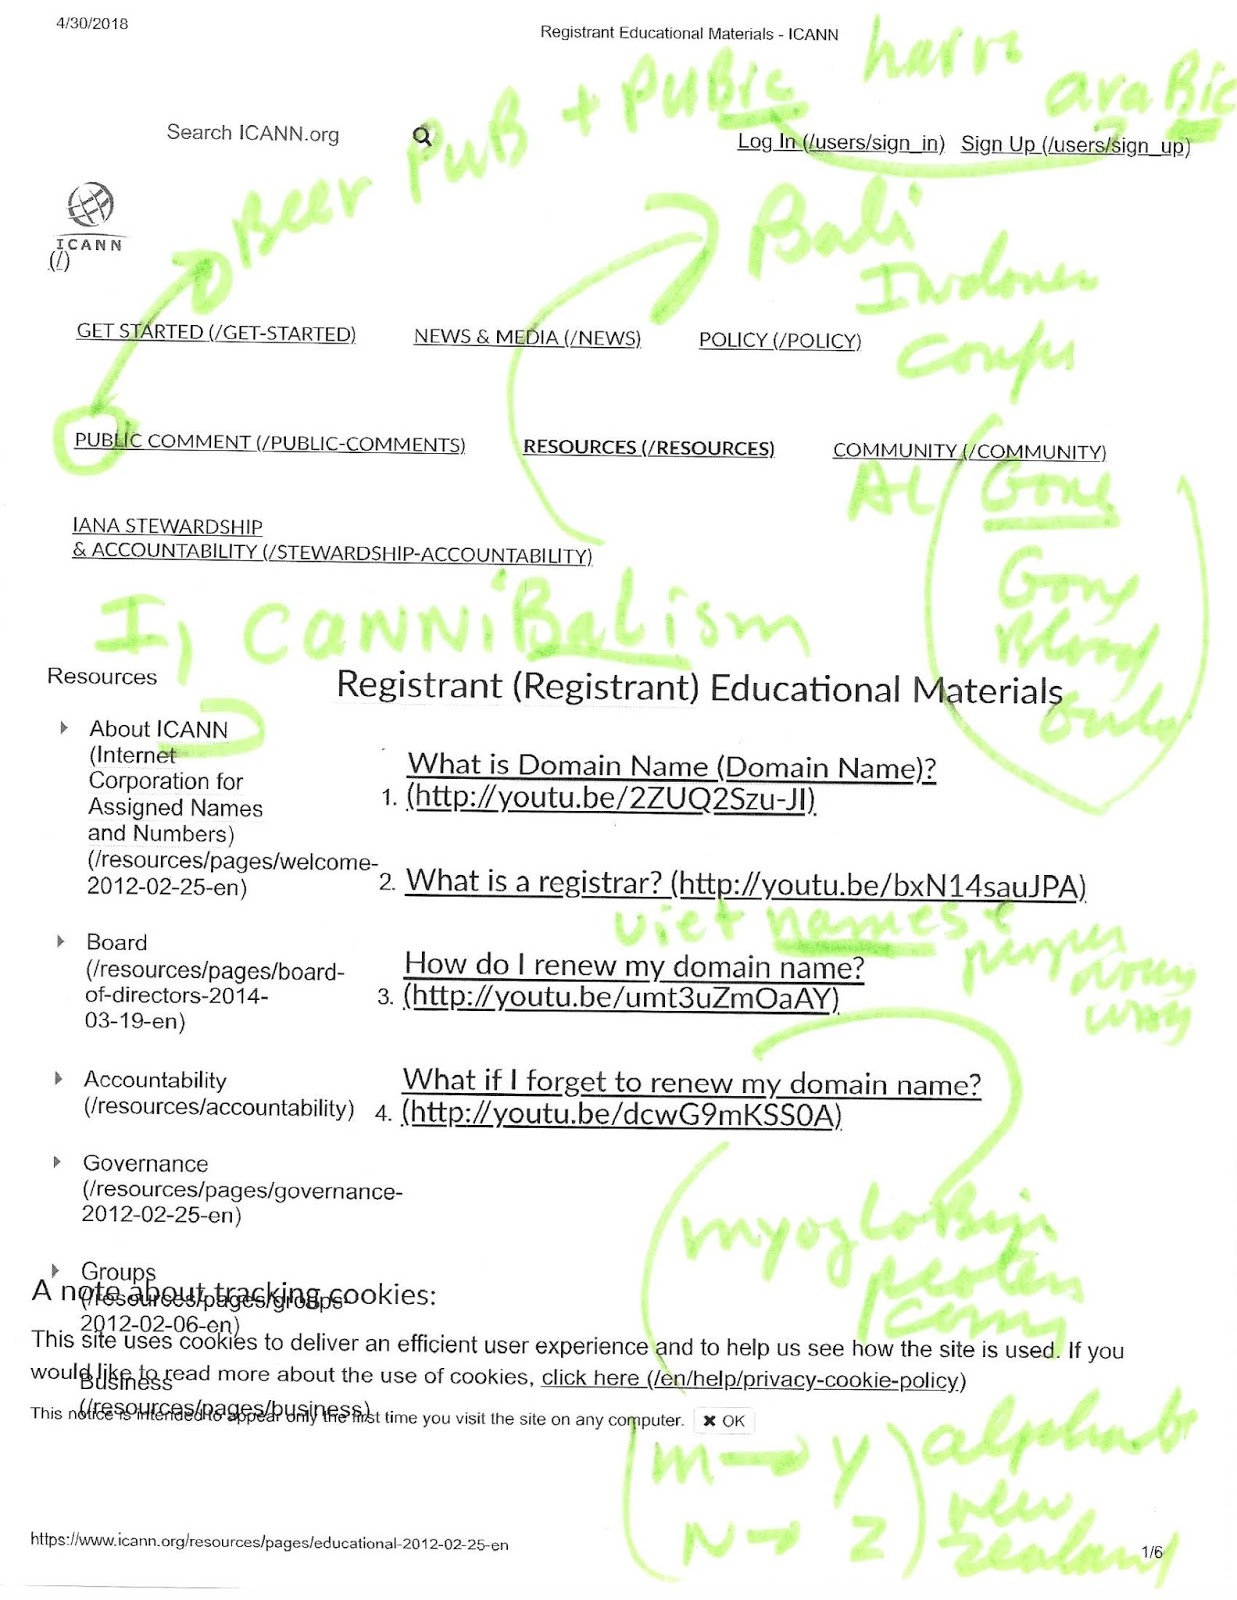 4/30/2018
Registrant Educational Materials - ICANN
Beer PuB + PuBic
araBic
Search ICANN.org
Log In (/users/sign_in) Sign Up (/users/sign_up)
ICANN
(/)
Bali
GET STARTED (/GET-STARTED) NEWS & MEDIA (/NEWS) POLICY (/POLICY)
PUBLIC COMMENT (/PUBLIC-COMMENTS) RESOURCES (/RESOURCES) COMMUNITY (/COMMUNITY)
IANA STEWARDSHIP
& ACCOUNTABILITY (/STEWARDSHIP-ACCOUNTABILITY)
I, CANNiBaLism
Resources
Registrant (Registrant) Educational Materials
About ICANN
(Internet
Corporation for
Assigned Names
and Numbers)
(/resources/pages/welcome-
2012-02-25-en)
What is Domain Name (Domain Name)?
1. (http://youtu.be/2ZUQ2Szu-JI)
2. What is a registrar? (http://youtu.be/bxN14sauJPA)
viet names
Board
(/resources/pages/board-
of-directors-2014-
03-19-en)
How do I renew my domain name?
3. (http://youtu.be/umt3uZmOaAY)
Accountability
(/resources/accountability)
What if I forget to renew my domain name?
4. (http://youtu.be/dcwG9mKSS0A)
Governance
(/resources/pages/governance-
2012-02-25-en)
myogLoBin
Groups
(/resources/pages/groups-
2012-02-06-en)
Business
(/resources/pages/business)
A note about tracking cookies:
This site uses cookies to deliver an efficient user experience and to help us see how the site is used. If you
would like to read more about the use of cookies, click here (/en/help/privacy-cookie-policy)
This notice is intended to appear only the first time you visit the site on any computer. ✖ OK
m → y
N → Z
new
https://www.icann.org/resources/pages/educational-2012-02-25-en
1/6